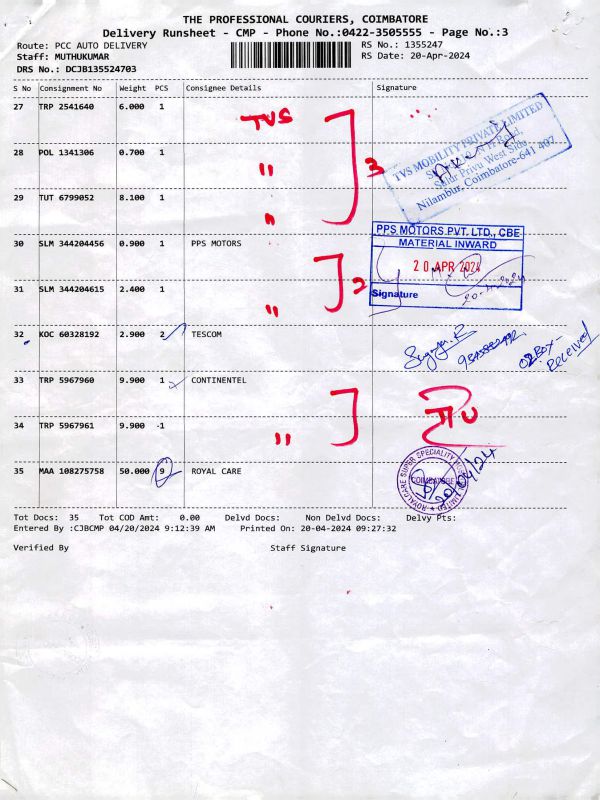 THE PROFESSIONAL COURIERS, COIMBATORE
Delivery Runsheet - CMP - Phone No.:0422-3505555 - Page No.:3
Route: PCC AUTO DELIVERY
RS No.: 1355247
Staff: MUTHUKUMAR
RS Date: 20-Apr-2024
DRS No.: DCJB135524703
S No Consignment No Weight PCS Consignee Details Signature
27 TRP 2541640 6.000 1 TVS
28 POL 1341306 0.700 1 "
3
29 TUT 6799052 8.100 1 "
TVS MOBILITY PRIVATE LIMITED
Nilambur, Coimbatore-641 407
30 SLM 344204456 0.900 1 PPS MOTORS
PPS MOTORS PVT. LTD., CBE
MATERIAL INWARD
20 APR 2024
Signature
31 SLM 344204615 2.400 1 "
2
32 KOC 60328192 2.900 2 TESCOM
02 BOX-
Received
33 TRP 5967960 9.900 1 CONTINENTEL
34 TRP 5967961 9.900 -1 "
35 MAA 108275758 50.000 9 ROYAL CARE
COIMBATORE
20/04/24
Tot Docs: 35 Tot COD Amt: 0.00 Delvd Docs: Non Delvd Docs: Delvy Pts:
Entered By :CJBCMP 04/20/2024 9:12:39 AM Printed On: 20-04-2024 09:27:32
Verified By Staff Signature